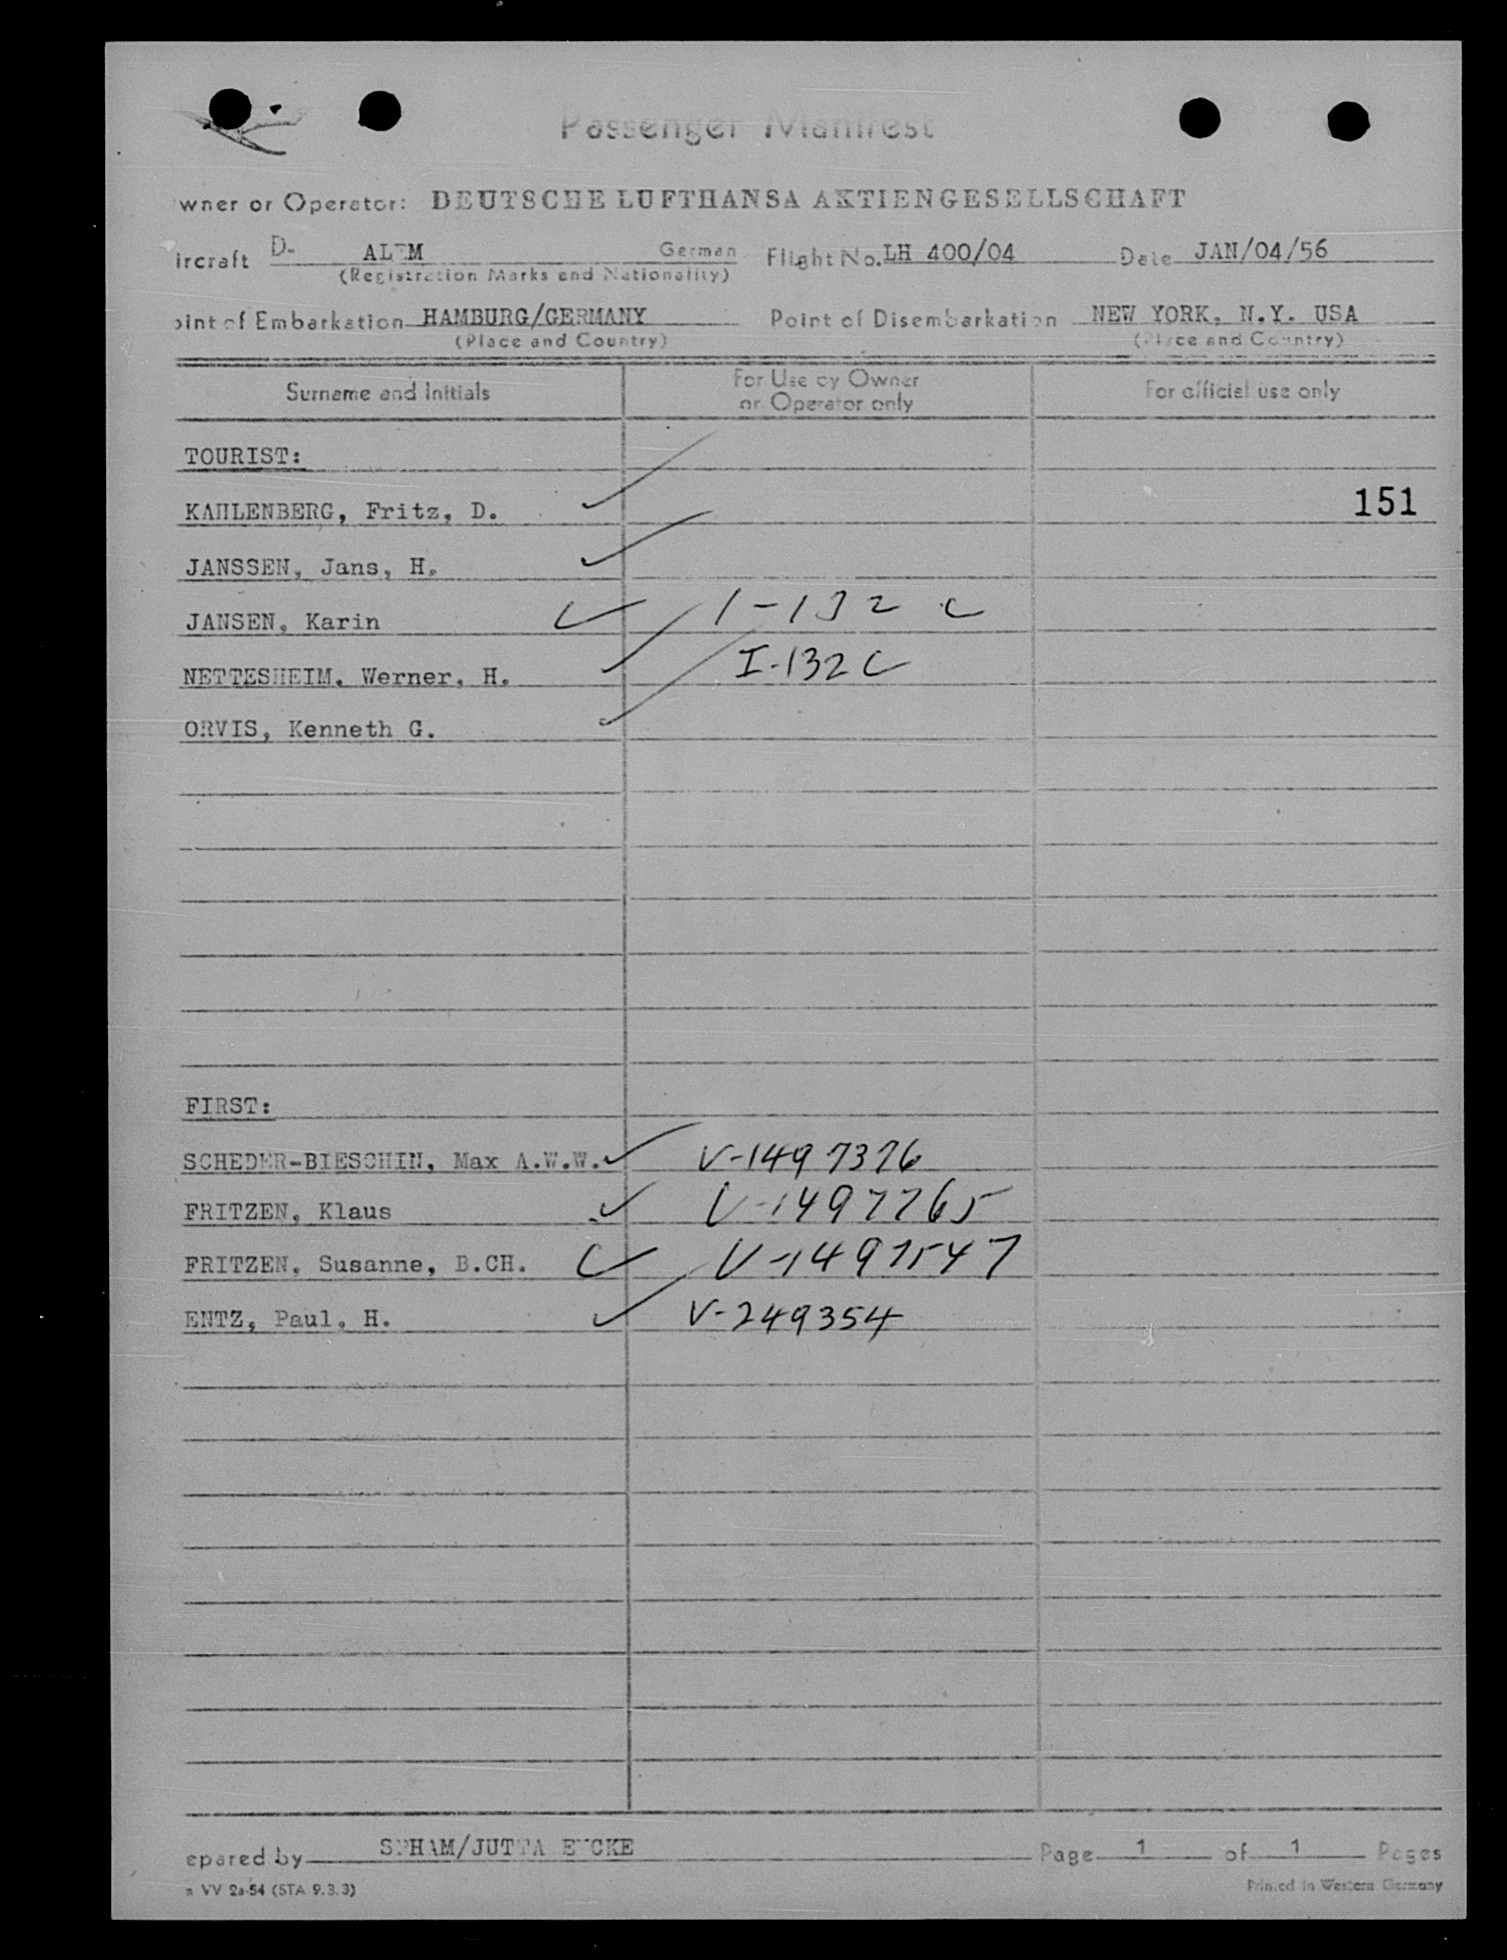 Passenger Manifest
wner or Operator: DEUTSCHE LUFTHANSA AKTIENGESELLSCHAFT
ircraft D- German Flight No. LH 400/04 Date JAN/04/56
(Registration Marks and Nationality)
oint of Embarkation HAMBURG/GERMANY Point of Disembarkation NEW YORK, N.Y. USA
(Place and Country) (Place and Country)
Surname and Initials For Use by Owner or Operator only For official use only
TOURIST:
KAHLENBERG, Fritz, D. 151
JANSSEN, Jans, H.
JANSEN, Karin I-132 C
NETTESHEIM, Werner, H. I-132 C
ORVIS, Kenneth G.
FIRST:
SCHEDER-BIESCHIN, Max A.W.W. V-1497376
FRITZEN, Klaus V-1497765
FRITZEN, Susanne, B.CH. V-1497547
ENTZ, Paul, H. V-249354
epared by Page 1 of 1 Pages
VV 2a-54 (STA 9.3.3) Printed in Western Germany